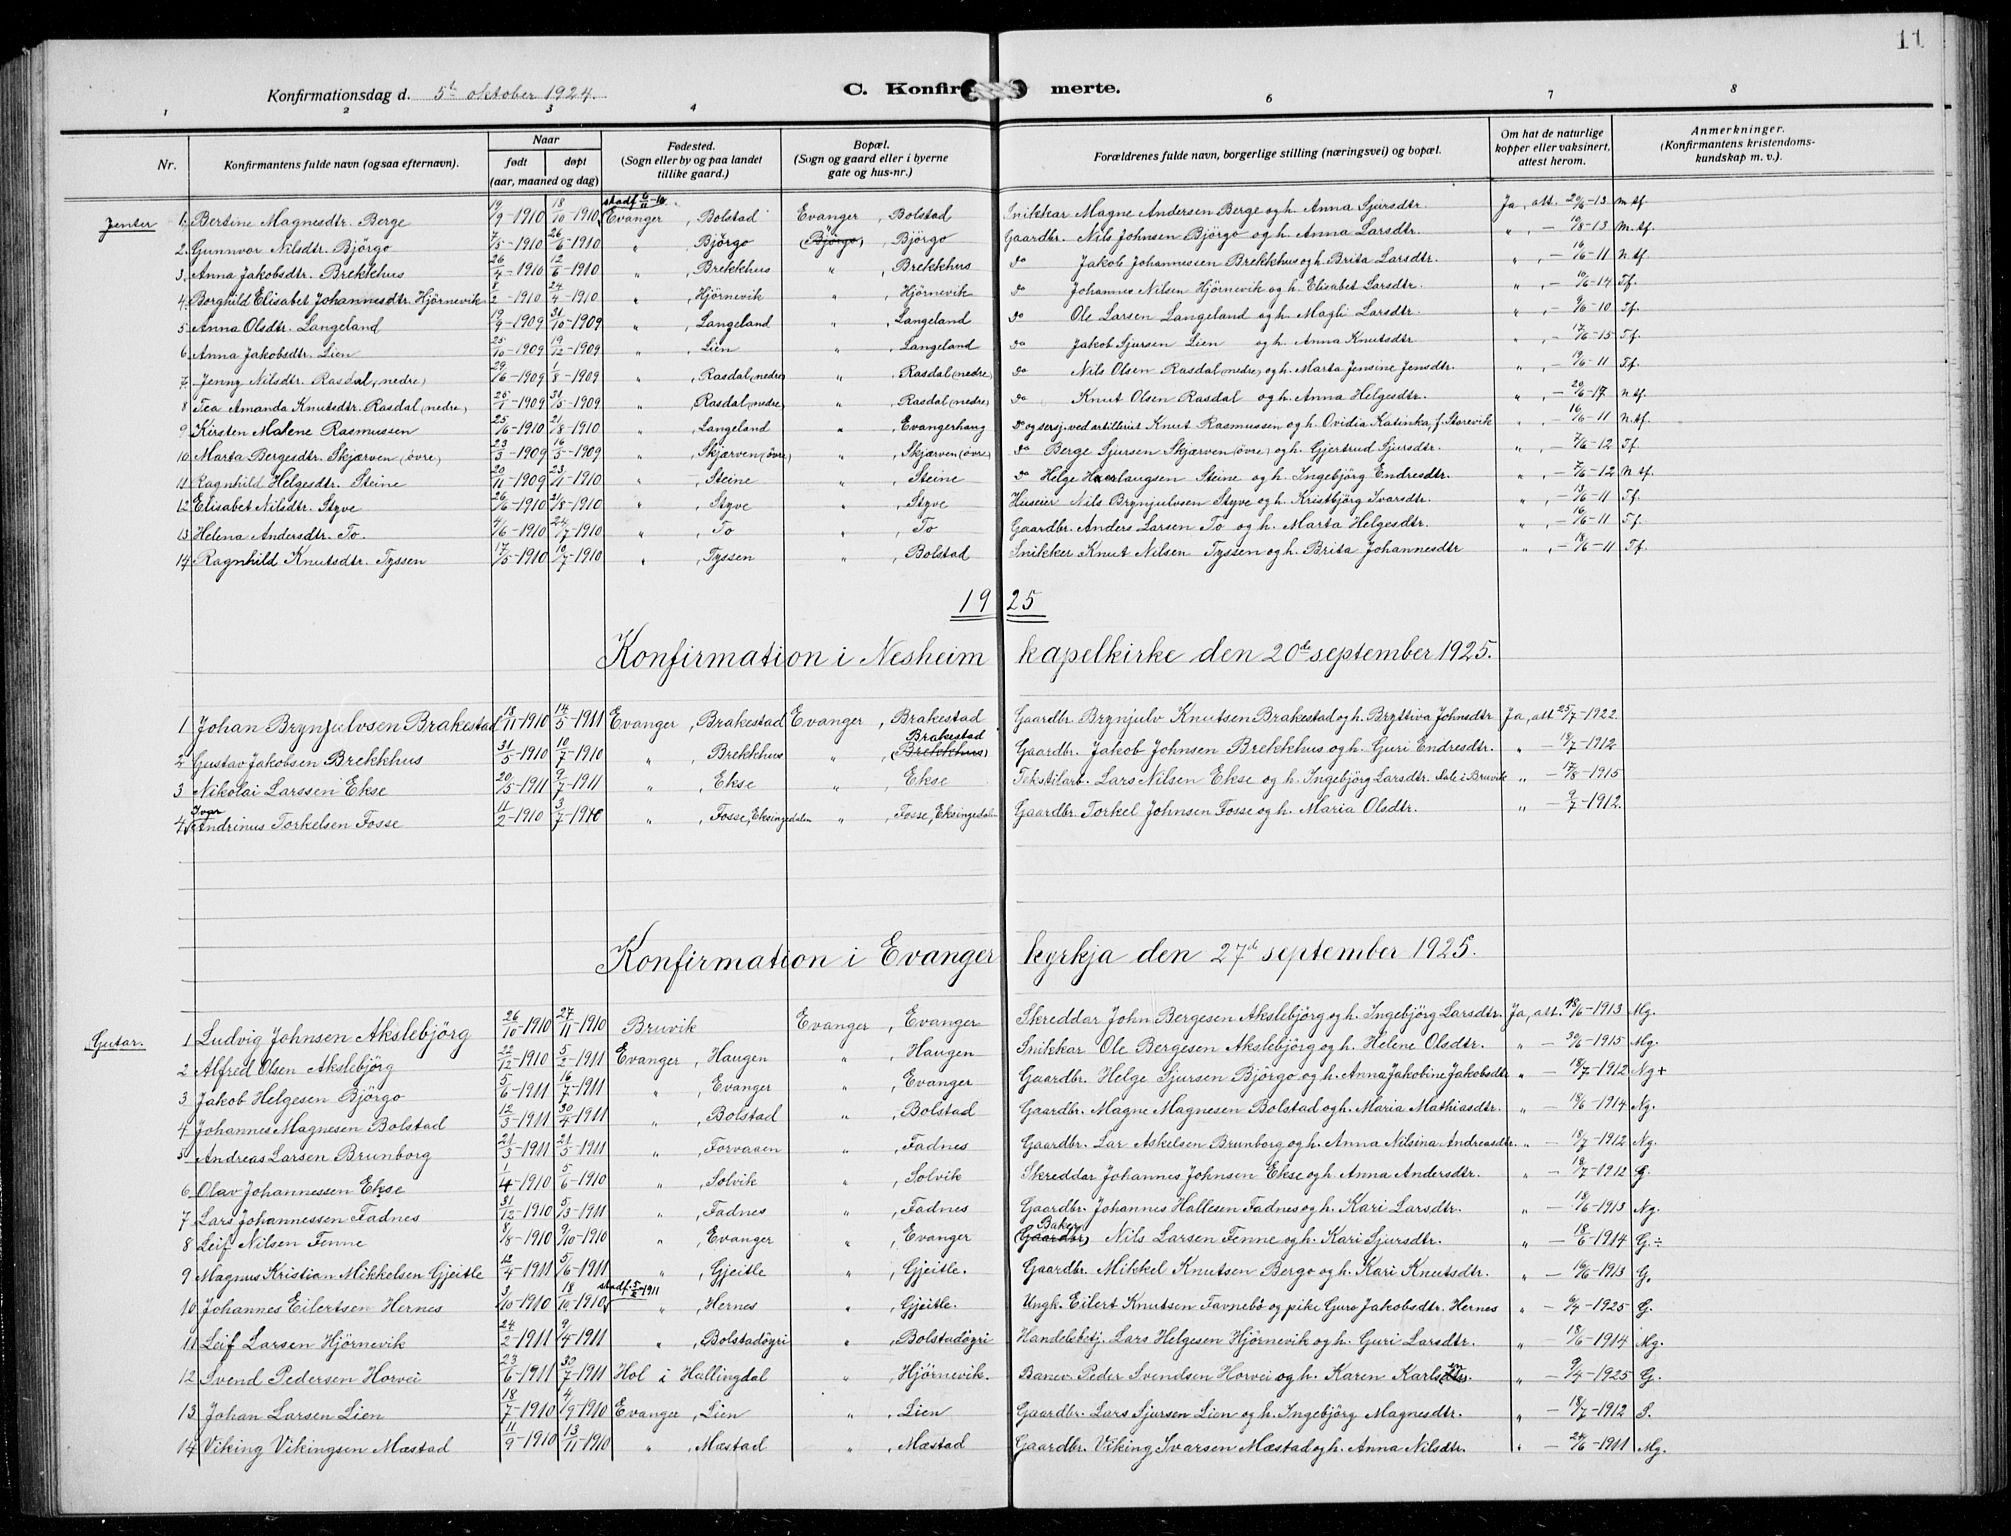 11
Konfirmationsdag d. 5te oktober 1924. C. Konfirmerte.
1 2 3 4 6 7 8
Nr. Konfirmantens fulde navn (ogsaa efternavn). Naar født døpt (aar, maaned og dag) Fødested. (Sogn eller by og paa landet tillike gaard.) Bopæl. (Sogn og gaard eller i byerne gate og hus-nr.) Forældrenes fulde navn, borgerlige stilling (næringsvei) og bopæl. Om hat de naturlige kopper eller vaksinert, attest herom. Anmerkninger. (Konfirmantens kristendomskundskap m. v.).
Jenter 1. Bertine Magnesdtr. Berge 19/9-1910 18/10-1910 stadf. 6/11-10 Evanger, Bolstad Evanger, Bolstad Snikkar Magne Andersen Berge og h. Anna Sjursdtr. Ja, att. 20/6-13 M.tf.
2. Gunnvor Nilsdtr. Björgo 7/5-1910 26/6-1910 " , Björgo (Björgo), Björgo Gaardbr. Nils Johnsen Björgo og h. Anna Larsdtr. " , - 10/8-13 M.tf.
3. Anna Jakobsdtr. Brekkhus 26/4-1910 12/6-1910 " , Brekkhus " , Brekkhus do Jakob Johannessen Brekkhus og h. Brita Larsdtr. " , - 16/6-11 N.tf.
4. Borghild Elisabet Johannesdtr. Hjörnevik 8/2-1910 24/4-1910 " , Hjörnevik " , Hjörnevik do Johannes Nilsen Hjörnevik og h. Elisabet Larsdtr. " , - 10/6-14 T.f.
5 Anna Olsdtr. Langeland 19/9-1909 31/10-1909 " , Langeland " , Langeland do Ole Larsen Langeland og h. Magli Larsdtr. " , - 9/6-10 T.f.
6 Anna Jakobsdtr. Lien 25/10-1909 19/12-1909 " , Lien " , Langeland do Jakob Sjursen Lien og h. Anna Knutsdtr. " , - 17/6-15 T.f.
7. Jenny Nilsdtr. Rasdal (nedre) 29/6-1909 1/8-1909 " , Rasdal (nedre) " , Rasdal (nedre) do Nils Olsen Rasdal (nedre) og h. Marta Jensine Jensdtr. " , - 19/6-11 T.f.
8 Tea Amanda Knutsdtr. Rasdal (nedre) 25/1-1909 31/5-1909 " , Rasdal (nedre) " , Rasdal (nedre) do Knut Olsen Rasdal og h. Anna Helgesdtr. " , - 20/6-17 N.tf.
9 Kirsten Malene Rasmussen 25/6-1910 21/8-1910 " , Langeland " , Evangerhang do og sersj. ved artilleriet Knut Rasmussen og h. Ovidia Katinka, f. Storevik " , - 16/6-11 N.tf.
10 Marta Bergesdtr. Skjærven (övre) 23/3-1909 16/5-1909 " , Skjærven (övre) " , Skjærven (övre) do Berge Sjursen Skjærven (övre) og h. Gjertrud Sjursdtr. " , - 7/6-12 T.f.
11 Ragnhild Helgesdtr. Steine 20/11-1909 23/1-1910 " , Steine " , Steine do Helge Herlaugsen Steine og h. Ingebjörg Endresdtr. " , - 7/6-12 N.tf.
12 Elisabet Nilsdtr. Styve 26/6-1910 21/8-1910 " , Styve " , Styve Huseier Nils Brynjulvsen Styve og h. Kristbjörg Ivarsdtr. " , - 13/6-11 T.f.
13 Helena Andersdtr. To. 4/6-1910 24/7-1910 " , To " , To Gaardbr. Anders Larsen To og h. Marta Helgesdtr. " , - 16/6-11 T.f.
14 Ragnhild Knutsdtr. Tyssen 17/5-1910 10/7-1910 " , Tyssen " , Bolstad Snikker Knut Nilsen Tyssen og h. Brita Johannesdtr " , - 18/6-11 T.f.
1925
Konfirmation i Nesheim kapelkirke den 20de september 1925.
1 Johan Brynjulvsen Brakestad 18/11-1910 14/5-1911 Evanger, Brakestad Evanger, Brakestad Gaardbr. Brynjulv Knutsen Brakestad og h. Bryttiva Johnsdtr Ja, att. 25/7-1922.
2 Gustav Jakobsen Brekkhus 31/5-1910 10/7-1910 " , Brekkhus " , Brakestad (Brekkhus) Gaardbr. Jakob Johnsen Brekkhus og h. Guri Endresdtr. " - 18/7-1912
3 Nikolai Larssen Ekse 20/5-1911 9/7-1911 " , Ekse " , Ekse Tekstilarb. Lars Nilsen Ekse og h. Ingebjörg Larsdtr. Dale i Bruvik " - 17/8-1915
4. Ivar Andrinus Torkelsen Fosse 11/2-1910 3/7-1910 " , Fosse, Eksingedalen " , Fosse, Eksingedalen Gaardbr. Torkel Johnsen Fosse og h. Maria Olsdtr. " - 9/7-1912.
Konfirmation i Evanger kyrkja den 27de september 1925.
Gutar. 1 Ludvig Johnsen Akslebjörg 26/10-1910 27/11-1910 Bruvik Evanger, Evanger Skreddar John Bergesen Akslebjörg og h. Ingebjörg Larsdtr. Ja, att. 18/6-1913 Mg.
2 Alfred Olsen Akslebjörg 22/12-1910 5/2-1911 Evanger, Haugen " , Haugen Snikkar Ole Bergesen Akslebjörg og h. Helene Olsdtr. " - 30/6-1915 Mg.
3 Jakob Helgesen Björgo 5/6-1911 16/7-1911 " , Evanger " , Evanger Gaardbr. Helge Sjursen Björgo og h. Anna Jakobine Jakobsdtr " - 18/7-1912 Ng+
4 Johannes Magnesen Bolstad 12/3-1911 30/4-1911 " , Bolstad " , Bolstad Gaardbr. Magne Magnesen Bolstad og h. Maria Mathiasdtr. " - 18/6-1914 Ng.
5 Andreas Larsen Brunborg 21/3-1911 21/5-1911 " , Forvaaen " , Fadnes Gaardbr. Lar Askelsen Brunborg og h. Anna Nilsina Andreasdtr. " - 18/7-1912 Ng.
6 Olav Johannessen Ekse 1/4-1910 5/6-1910 " , Solvik " , Solvik Skreddar Johannes Johnsen Ekse og h. Anna Andersdtr. " - 18/7-1912 G.
7 Lars Johannessen Fadnes 31/12-1910 5/3-1911 " , Fadnes " , Fadnes Gaardbr. Johannes Hallesen Fadnes og h. Kari Larsdtr. " - 18/6-1913 Ng.
8 Leif Nilsen Fenne 8/8-1910 9/10-1910 " , Evanger " , Evanger Baker (Gaardbr) Nils Larsen Fenne og h. Kari Sjursdtr. " - 18/6-1914 G.÷
9 Magnus Kristian Mikkelsen Gjeitle 12/4-1911 5/6-1911 " , Gjeitle " , Gjeitle. Gaardbr. Mikkel Knutsen Bergo og h. Kari Knutsdtr. " - 16/6-1913 G.
10 Johannes Eilertsen Hernes 3/10-1910 18/10-1910 stadf. 5/2-1911 " , Hernes " , Gjeitle. Ungk. Eilert Knutsen Favnebö og pike Guro Jakobsdtr. Hernes " - 9/4-1925 G.
11 Leif Larsen Hjörnevik 24/2-1911 9/4-1911 " , Bolstadöyri " , Bolstadöyri Handelsbetj. Lars Helgesen Hjörnevik og h. Guri Larsdtr. " - 18/6-1914 Mg.
12 Svend Pedersen Horvei 23/6-1911 30/7-1911 Hol i Hallingdal " , Hjörnevik. Banev. Peder Svendsen Horvei og h. Karen Karls " - 9/4-1925 G.
13 Johan Larsen Lien 18/7-1910 4/9-1910 Evanger, Lien " , Lien Gaardbr. Lars Sjursen Lien og h. Ingebjörg Magnesdtr. " - 18/7-1912 S.
14 Viking Vikingsen Mæstad 11/9-1910 13/11-1910 " , Mæstad " , Mæstad Gaardbr. Viking Ivarsen Mæstad og h. Anna Nilsdtr. " - 24/6-1911 Mg.